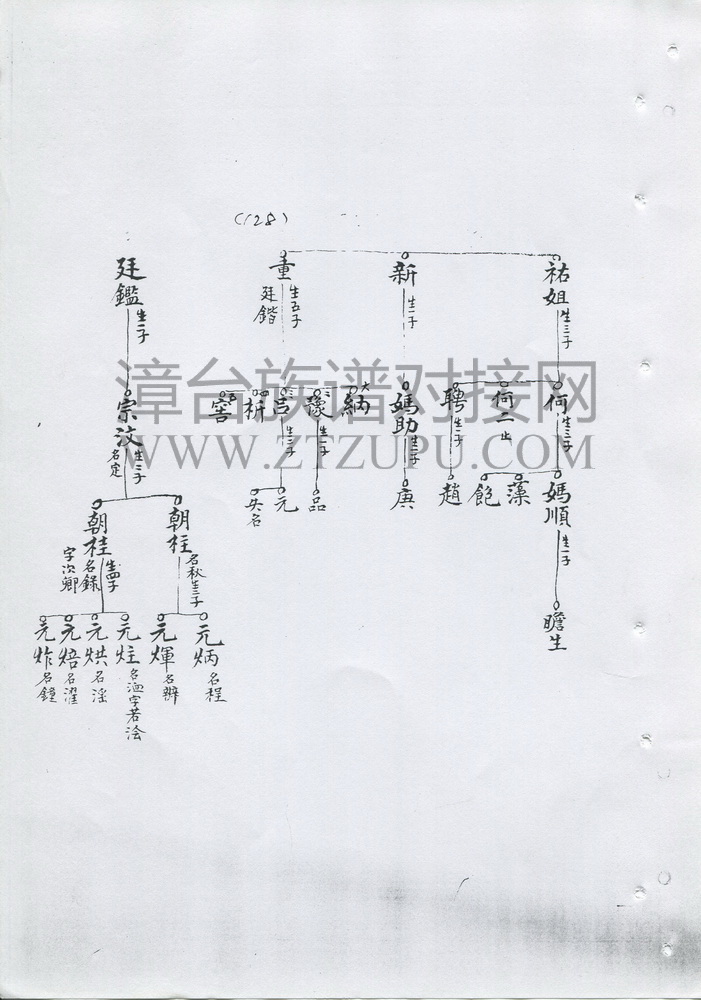 (128)
祐姐 生三子
新 生一子
董 生五子
廷鍇
廷鑑 生一子
何 生三子
何一 止
聘 生一子
媽助 生一子
大
納
豫 生一子
三
吕 生二子
四
析
五
窖
宗汶 生二子
名定
媽順 生一子
藻
飽
趙
庚
品
元
失名
朝柱
名秋生二子
朝桂 生四子
名錄
字次卿
瞻生
元炳 名程
元煇 名辦
元炷 名洒字若淦
元烘 名滛
元焙 名濯
元炸 名鐘
漳台族谱对接网
WWW.ZTZUPU.COM